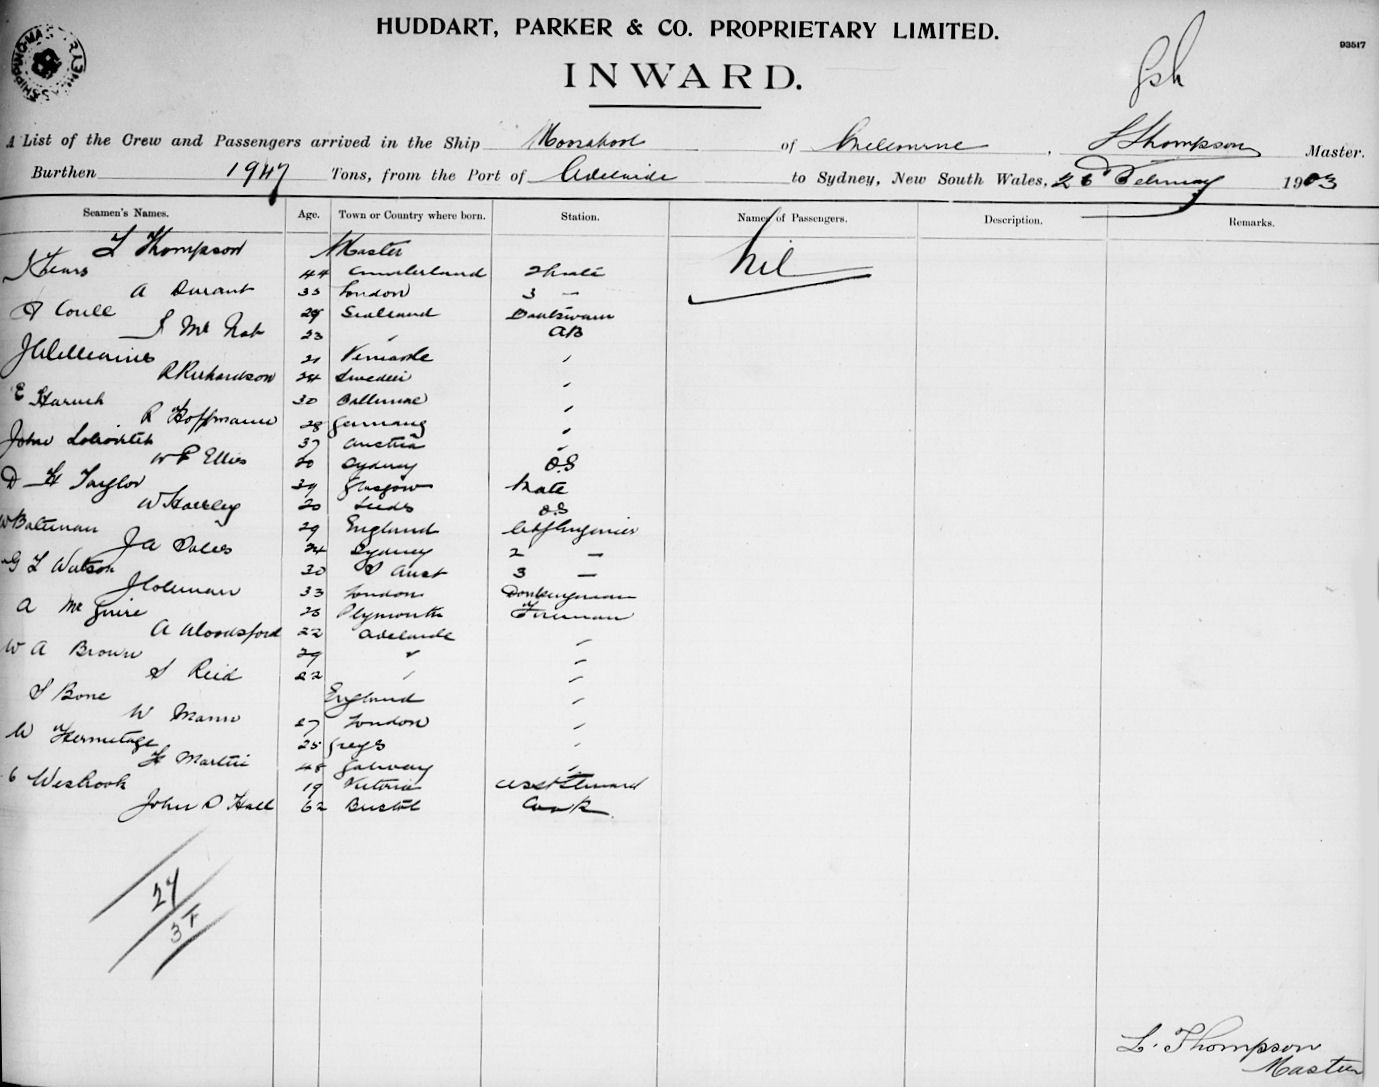 HUDDART, PARKER & CO. PROPRIETARY LIMITED.
93517
INWARD.
A List of the Crew and Passengers arrived in the Ship Moorabool of Melbourne, L Thompson Master.
Burthen 1947 Tons, from the Port of Adelaide to Sydney, New South Wales, 26 February 1903
Seamen's Names. Age. Town or Country where born. Station. Names of Passengers. Description. Remarks.
L Thompson Master Nil
44 Cumberland 2 Mate
A Durant 35 London 3 —
29
23 " AB
J Williams 21 "
R Richardson 24 Sweden "
E 30 "
R Hoffmann 28 Germany "
John 37 Austria "
W P Ellis 20 Sydney O.S
D H Taylor 39 Glasgow Mate
W 20 Leeds O.S
W Bateman 29 England
J A Davies 24 Sydney 2 —
G L Watson 30 S Aust 3 —
J Coleman 33 London
A McGuire 25 Plymouth Fireman
A Woodsford 22 Adelaide "
W A Brown 29 " "
S Reid 22 " "
S Bone England "
W Mann 27 London "
W Hermitage 25 Grays "
H Martin 48 Galway "
C Wesbrook 19 Victoria Asst Steward
John D Hall 62 Bristol Cook
27
L. Thompson
Master